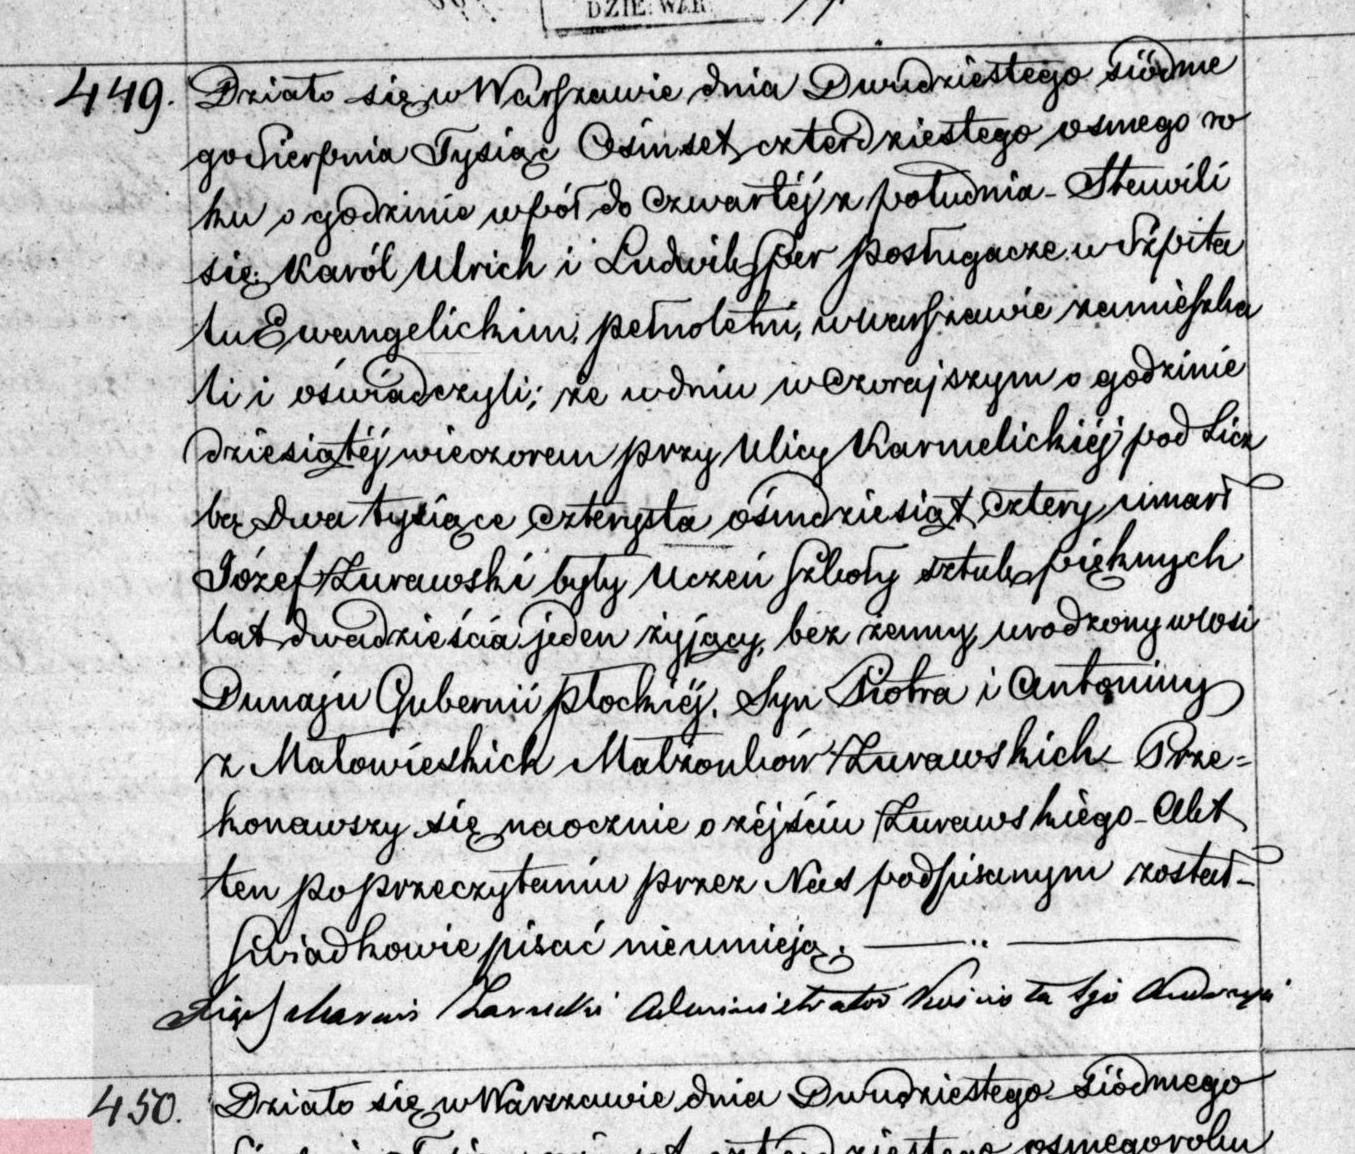 DZIE. WAR.
449. Działo się w Warszawie dnia Dwudziestego siódme
go Sierpnia Tysiąc Ośmset czterdziestego osmego ro
ku o godzinie wpół do Czwartéj z południa – Stawili
się Karól Ulrich i Ludwik Sper posługacze w Szpita
lu Ewangelickim, pełnoletni, w Warszawie zamieszka
li i oświadczyli; że w dniu wczorajszym o godzinie
dziesiątéj wieczorem przy Ulicy Karmelickiéj pod Licz
bą dwa tysiące czterysta ośmdziesiąt cztery umarł
Józef Żurawski były Uczeń Szkoły sztuk pięknych
lat dwadzieścia jeden żyjący, bez żenny, urodzony w wsi
Dunaju Gubernii płockiéj. Syn Piotra i Antoniny
z Małowieskich Małżonków Żurawskich – Prze=
konawszy się naocznie o zejściu Żurawskiego – Akt
ten po przeczytaniu przez Nas podpisanym został –
Świadkowie pisać nieumieją.
Administrator Kościoła Sgo Andrzeja
450. Działo się w Warszawie dnia Dwudziestego Siódmego
czterdziestego osmego roku